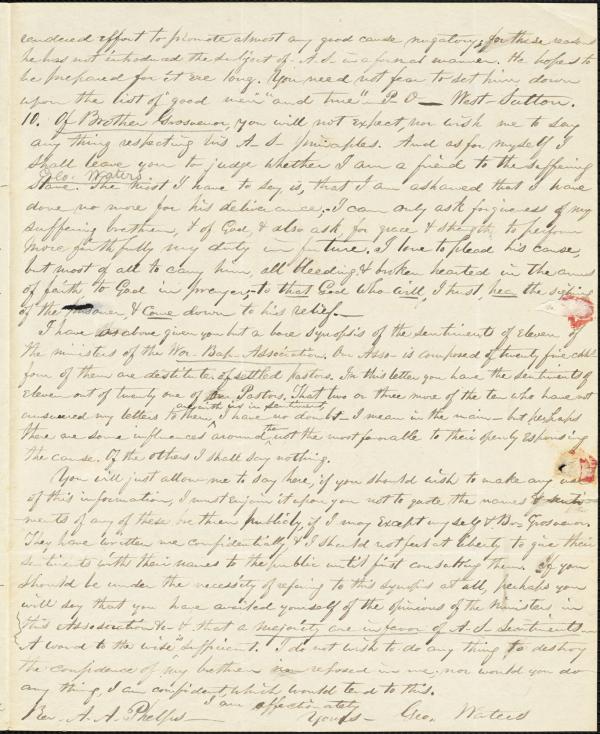 endered effort to promote almost any good cause nugatory, for these reasons
he has not introduced the subject of A. S. in a formal manner. He hopes to
be prepared for it ere long. You need not fear to set him down
upon the list of "good men" and true" – P. O – West Sutton.
10. Of Brother Grosvenor, you will not expect, nor wish me to say
any thing respecting his A – S – principles. And as for myself I
shall leave you to judge whether I am a friend to the suffering
Geo. Waters.
slave. The most I have to say, is, that I am ashamed that I have
done no more for his deliverance, – I can only ask forgiveness of my
suffering brethren, & of God, & also ask, for grace & strength to perform
more faithfully my duty in future. I love to plead his cause,
but most of all to carry him, all bleeding & broken hearted in the arms
of faith to God in prayer, – to that God who will, I trust, hear the sighing
of the prisoner, & come down to his relief. –
I have as above given you but a bare synopsis of the sentiments of Eleven of
the ministers of the Wor. Bap. Association. Our Asso – is composed of twenty five chhs
four of them are destitute of settled pastors. In this letter you have the sentiments of
Eleven out of twenty one of our Pastors. That two or three more of the ten who have not
are with us in sentiment
answered my letters to them, I have no doubt – I mean in the main – but perhaps
there are some influences around them not the most favorable to their openly espousing
the cause. Of the others I shall say nothing.
You will just allow me to say here, if you should wish to make any use
of this information, I must enjoin it upon you not to quote the names & senti-
ments of any of these brethren publicly, if I may except myself & Bro – Grosvenor.
They have written me confidentially, & I should not feel at liberty to give their
sentiments with their names to the public until first consulting them. If you
should be under the necessity of refering to this synopsis at all, perhaps you
will say that you have availed yourself of the opinions of the Ministers in
this Association &c – & that a majority are in favor of A. S. Sentiments –
A word to the wise "sufficient." I do not wish to do any thing to destroy
the confidence of my brethren reposed in me, nor would you do
any thing, I am confident, which would tend to this.
I am affectionately
Rev. A. A. Phelps – Yours – Geo. Waters